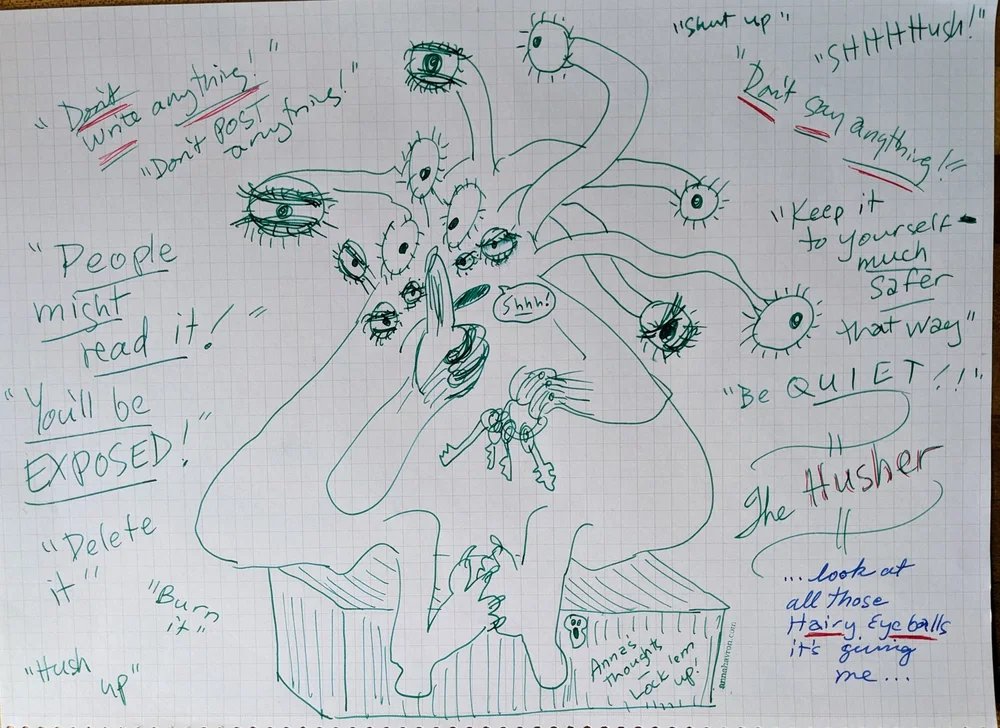 "Don't
write anything!"
"Don't POST
anything!"
"People
might
read it!"
"You'll be
EXPOSED!"
"Delete
it"
"Burn
it"
"Hush
up"
Shhh!
Anna's
Thoughts
—
Lock 'em
up!
annahavron.com
"Shut up"
"SHHHHush!"
"Don't say anything!"
"Keep it
to yourself -
much
safer
that way"
"Be QUIET!!"
"The Husher"
...look at
all those
Hairy Eyeballs
it's giving
me...